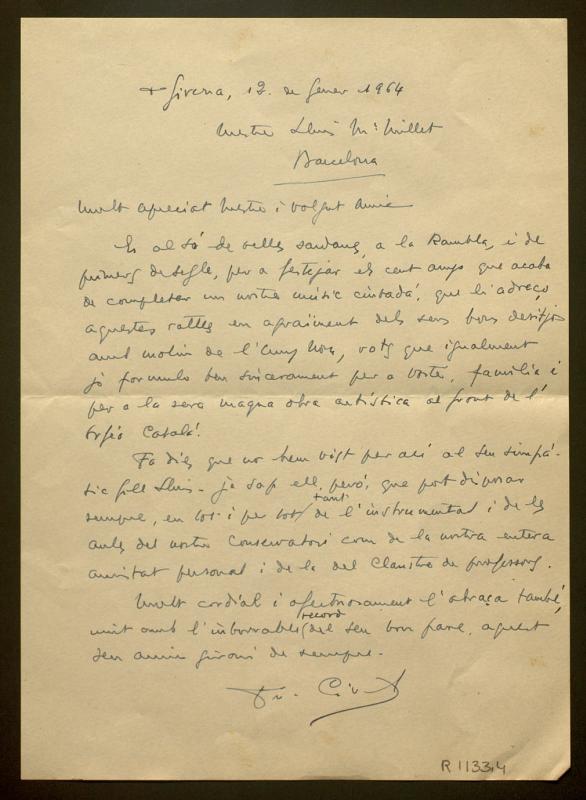 + Girona, 12. de Gener 1964
Mestre Lluís Mª Millet
Barcelona
Molt apreciat Mestre i volgut Amic
Es al só de velles sardanes, a la Rambla, i de
primers de segle, per a festejar els cent anys que acaba
de completar un nostre músic ciutadá, que li adreço
aquestes ratlles en agraiment dels seus bons desitjos
amb motiu de l'Any Nou, vots que igualment
jo formulo ben sincerament per a Vosté, familia i
per a la seva magna obra artística al front de l'
Orfeó Catalá.
Fa dies que no hem vist per ací al seu simpá-
tic fill Lluis - ja sap ell, peró, que pot disposar
sempre, en tot i per tot, tant de l'instrumental i de les
aules del nostre Conservatori com de la nostra entera
amistat personal i de la del Claustre de professors.
Molt cordial i afectuosament l'abraça també,
unit amb l'inborrable record del seu bon pare, aquest
seu amic gironí de sempre.
Fr. Civil
R 1133,4